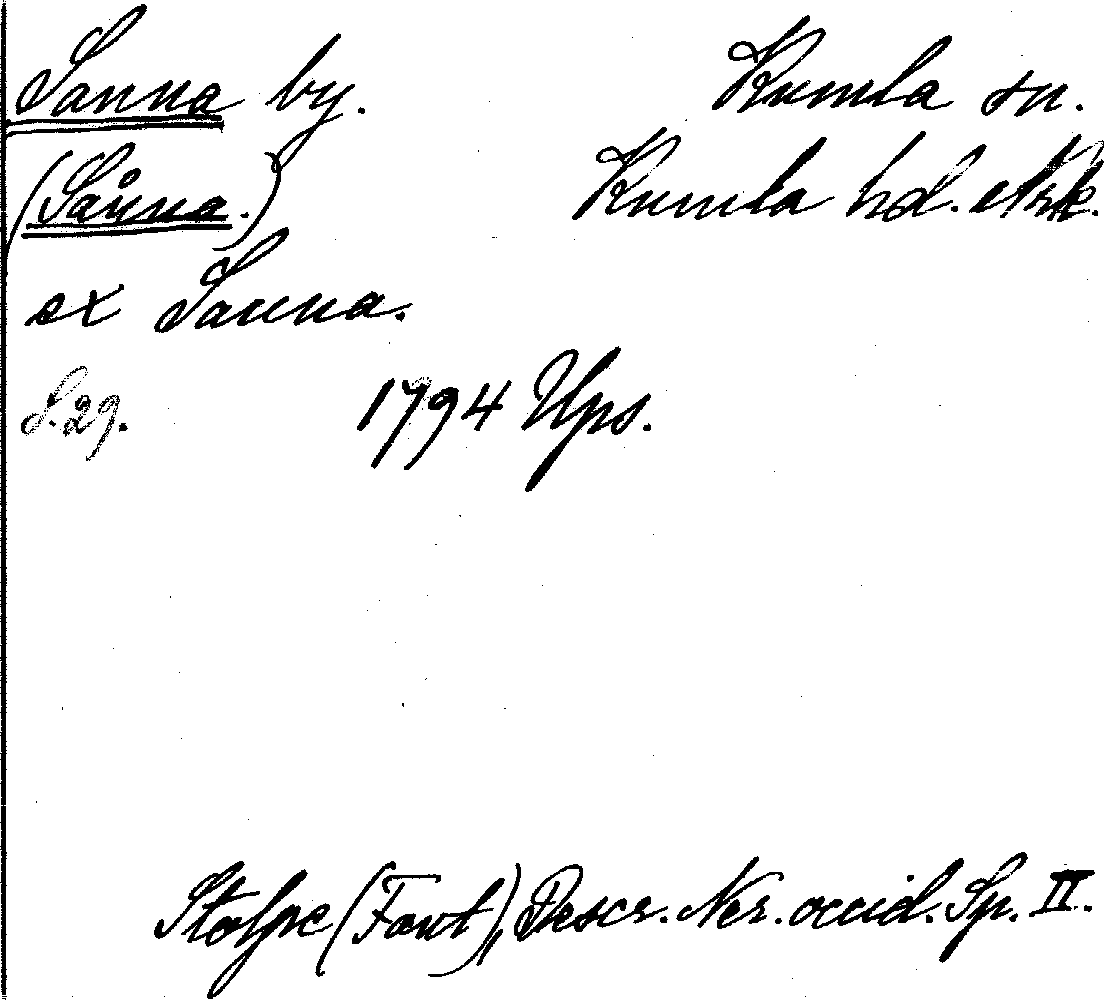 Sanna by. Kumla sn.
(Sånna.) Kumla hd. Nrk.
ex Sanna.
S. 29. 1794 Ups.
Stolpe (Fant), Descr. Ner. occid. Sp. II.